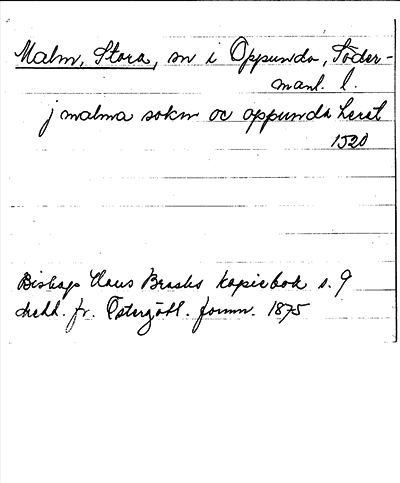 Malm, Stora, sn i Oppunda, Söder-
manl. l.
j malma sokn oc oppunda heret
1520
Biskop Hans Brasks kopiebok s. 9
Medd. fr. Östergötl. fornm. 1875